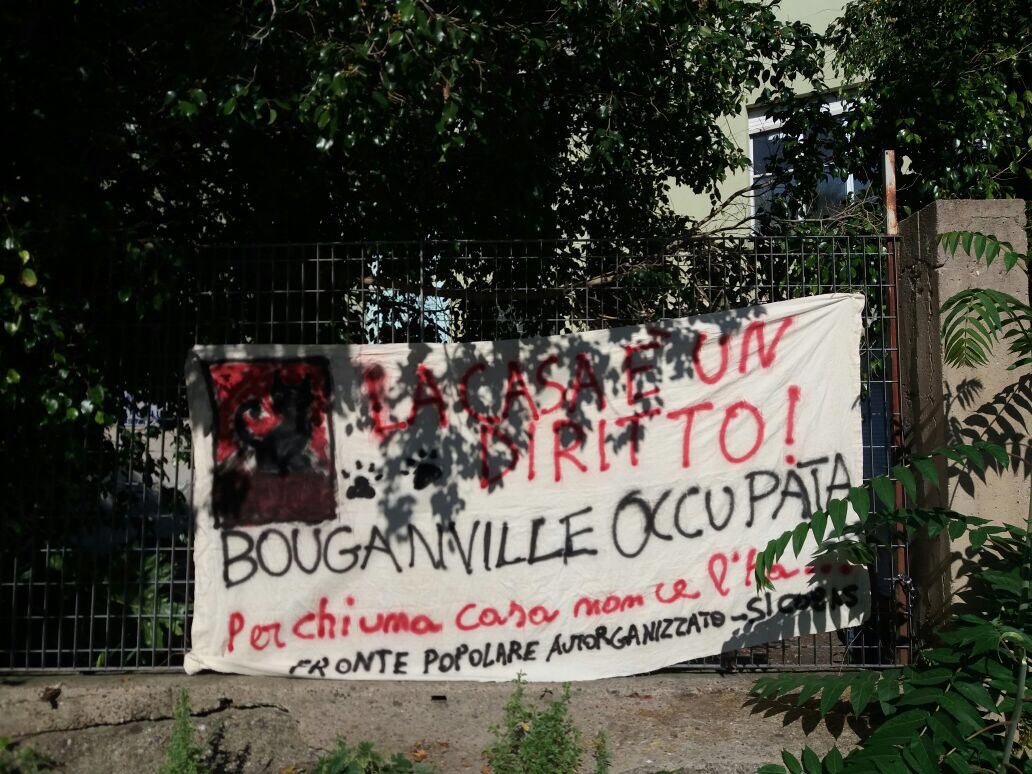 LA CASA È UN
DIRITTO!
BOUGANVILLE OCCUPATA
Per chi una casa non ce l'ha...
FRONTE POPOLARE AUTORGANIZZATO - SI COBAS